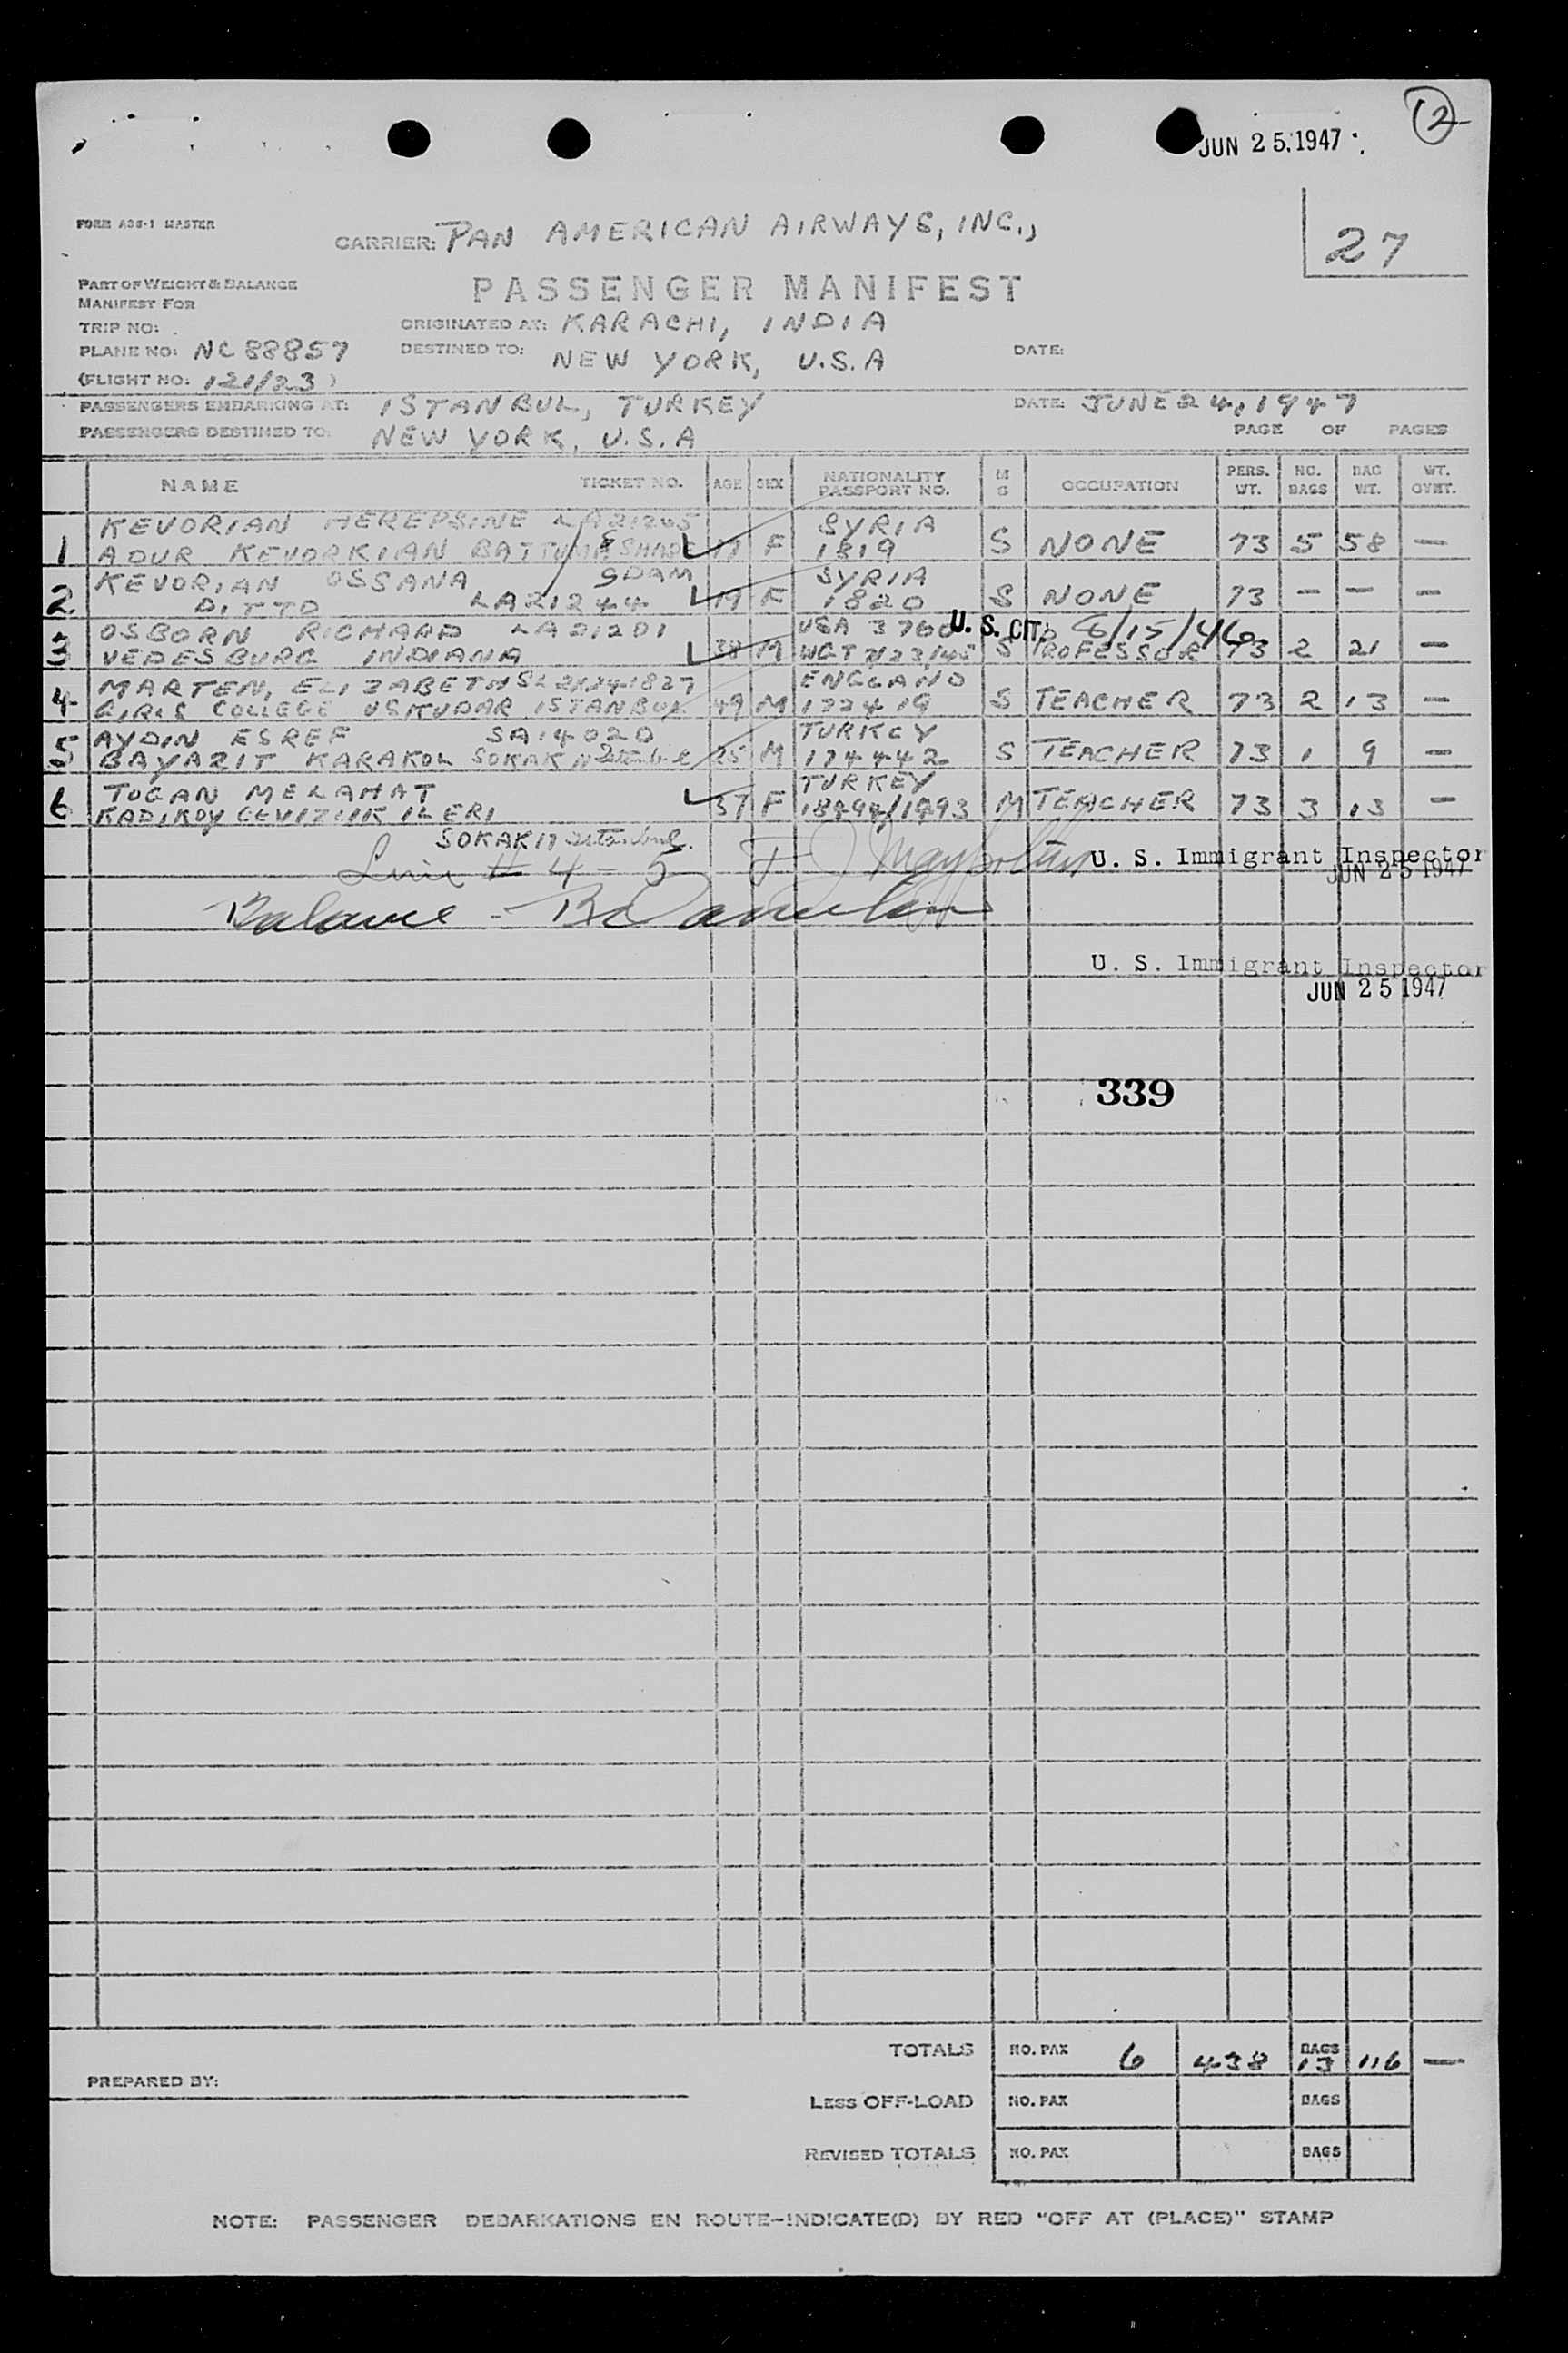 12
JUN 25 1947
FORM A36-1 MASTER
CARRIER: PAN AMERICAN AIRWAYS, INC.,
27
PART OF WEIGHT & BALANCE
MANIFEST FOR
PASSENGER MANIFEST
TRIP NO:
ORIGINATED AT: KARACHI, INDIA
PLANE NO: NC 88857
DESTINED TO: NEW YORK, U.S.A
DATE:
(FLIGHT NO: 121/23)
PASSENGERS EMBARKING AT: ISTANBUL, TURKEY
DATE: JUNE 24, 1947
PASSENGERS DESTINED TO: NEW YORK, U.S.A
PAGE OF PAGES
NAME TICKET NO. AGE SEX NATIONALITY PASSPORT NO. M S OCCUPATION PERS. WT. NO. BAGS BAG WT. WT. OVHT.
KEVORIAN HEREPSINE LA21245 SYRIA
1 ADUR KEVORKIAN F 1819 S NONE 73 5 58 —
KEVORIAN OSSANA SYRIA
2 DITTO LA21244 F 1820 S NONE 73 — — —
OSBORN RICHARD LA21201 USA 3760 U. S. CIT. 6/15/46
3 VEDESBURG INDIANA 38 M S PROFESSOR 73 2 21 —
MARTEN, ELIZABETH ENGLAND
4 GIRLS COLLEGE USKUDAR ISTANBUL 49 M 122419 S TEACHER 73 2 13 —
AYDIN ESREF SA14020 TURKEY
5 BAYAZIT KARAKOL SOKAK 11 Istanbul 25 M 174442 S TEACHER 73 1 9 —
TUGAN MELAHAT TURKEY
6 KADIKOY CEVIZLIK ILERI 37 F M TEACHER 73 3 13 —
SOKAK 17 Istanbul.
Line # 4 - 5
U. S. Immigrant Inspector
JUN 25 1947
Balance -
U. S. Immigrant Inspector
JUN 25 1947
339
TOTALS NO. PAX 6 438 BAGS 13 116 —
PREPARED BY:
LESS OFF-LOAD NO. PAX BAGS
REVISED TOTALS NO. PAX BAGS
NOTE: PASSENGER DEBARKATIONS EN ROUTE-INDICATE(D) BY RED "OFF AT (PLACE)" STAMP